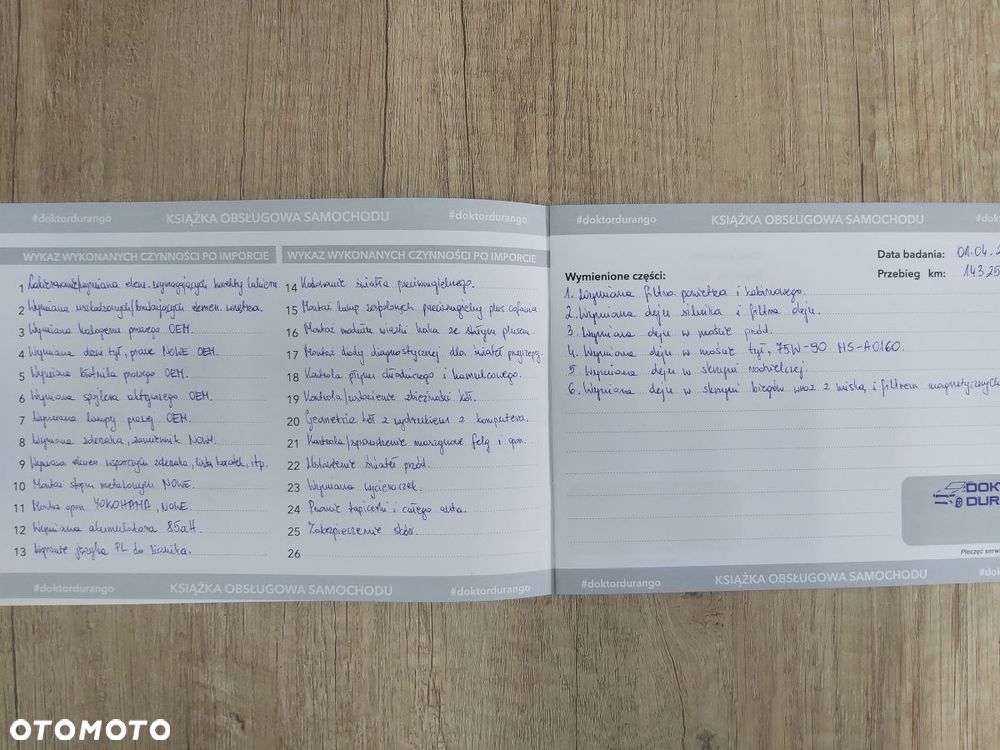 #doktordurango KSIĄŻKA OBSŁUGOWA SAMOCHODU #doktordurango
WYKAZ WYKONANYCH CZYNNOŚCI PO IMPORCIE
1 Lakierowanie/wymiana elem. wymagających korekty lakiern.
2 Wymiana uszkodzonych/brakujących elemen. wnętrza.
3 Wymiana halogenu prawego OEM.
4 Wymiana drzwi tył, prawe NOWE OEM.
5 Wymiana błotnika prawego OEM.
6 Wymiana spojlera aktywnego OEM.
7 Wymiana lampy prawej OEM.
8 Wymiana zderzaka, zamiennik NOWY.
9 Wymiana elemen. wsporczych zderzaka, listw, kratek, itp.
10 Montaż stopni metalowych NOWE.
11 Montaż opon YOKOHAMA, NOWE.
12 Wymiana akumulatora 85aH.
13 Wgranie języka PL do licznika.
WYKAZ WYKONANYCH CZYNNOŚCI PO IMPORCIE
14 światła przeciwmgielnego.
15 Montaż lamp zespolonych przeciwmgielny plus cofania
16 Montaż modułu wiązki haka ze stałym plusem.
17 Montaż diody diagnostycznej dla świateł przyczepy
18 Kontrola płynu chłodniczego i hamulcowego.
19 Kontrola/ustawienie zbieżności kół.
20 Geometria kół z wydrukiem z komputera.
21 Kontrola/sprawdzenie maszynowe felg i opon.
22 Ustawienie świateł przód.
23 Wymiana wycieraczek.
24 Pranie tapicerki i całego auta.
25 Zabezpieczenie skór.
26
#doktordurango KSIĄŻKA OBSŁUGOWA SAMOCHODU #doktordurango
#doktordurango KSIĄŻKA OBSŁUGOWA SAMOCHODU #dokt
Data badania: 01.04.2
Przebieg km: 14325
Wymienione części:
1. Wymiana filtra powietrza i kabinowego.
2. Wymiana oleju silnika i filtra oleju.
3. Wymiana oleju w moście przód.
4. Wymiana oleju w moście tył, 75W-90 MS-A0160.
5. Wymiana oleju w skrzyni rozdzielczej.
6. Wymiana oleju w skrzyni biegów wraz z miską i filtrem magnetycznych
DOKT
DURA
Pieczęć serwi
#doktordurango KSIĄŻKA OBSŁUGOWA SAMOCHODU #do
OTOMOTO